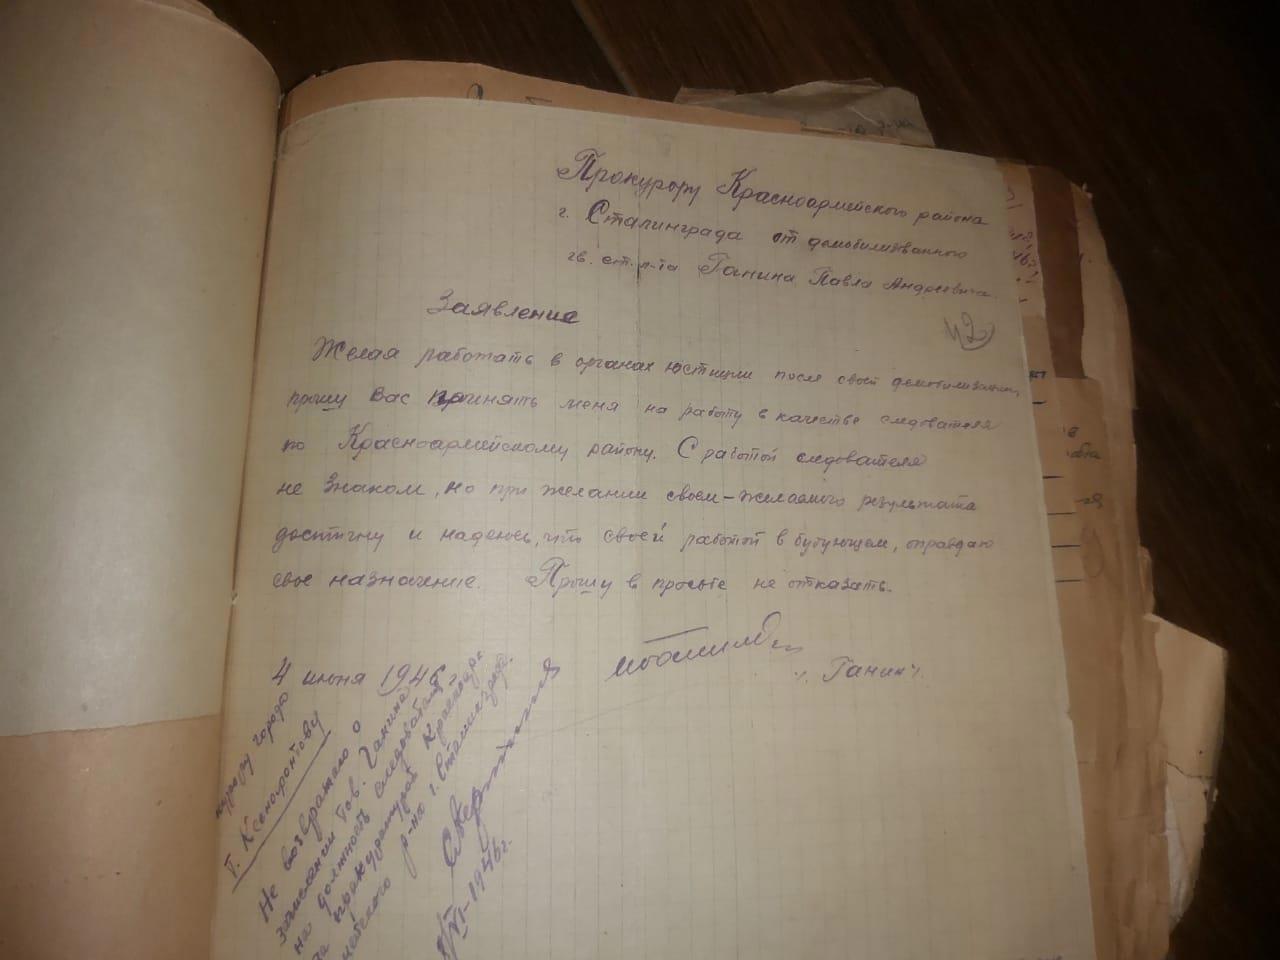 Прокурору Красноармейского района
г. Сталинграда от демобилизванного
гв. ст. л-та Ганина Павла Андреевича.
42
Заявление
Желая работать в органах юстиции после своей демобилизации,
прошу Вас принять меня на работу в качестве следователя
по Красноармейскому району. С работой следователя
не знаком, но при желании своем - желаемого результата
достигну и надеюсь, что своей работой в будующем, оправдаю
свое назначение. Прошу в просьбе не отказать.
4 июня 1946 г.
/Ганин/.
города
т. Ксенофонтову
Не возвражаю о
зачислении тов. Ганина
на должность следователя
прокуратурой Красноар-
мейского р-на г. Сталинграда.
VI-1946 г.